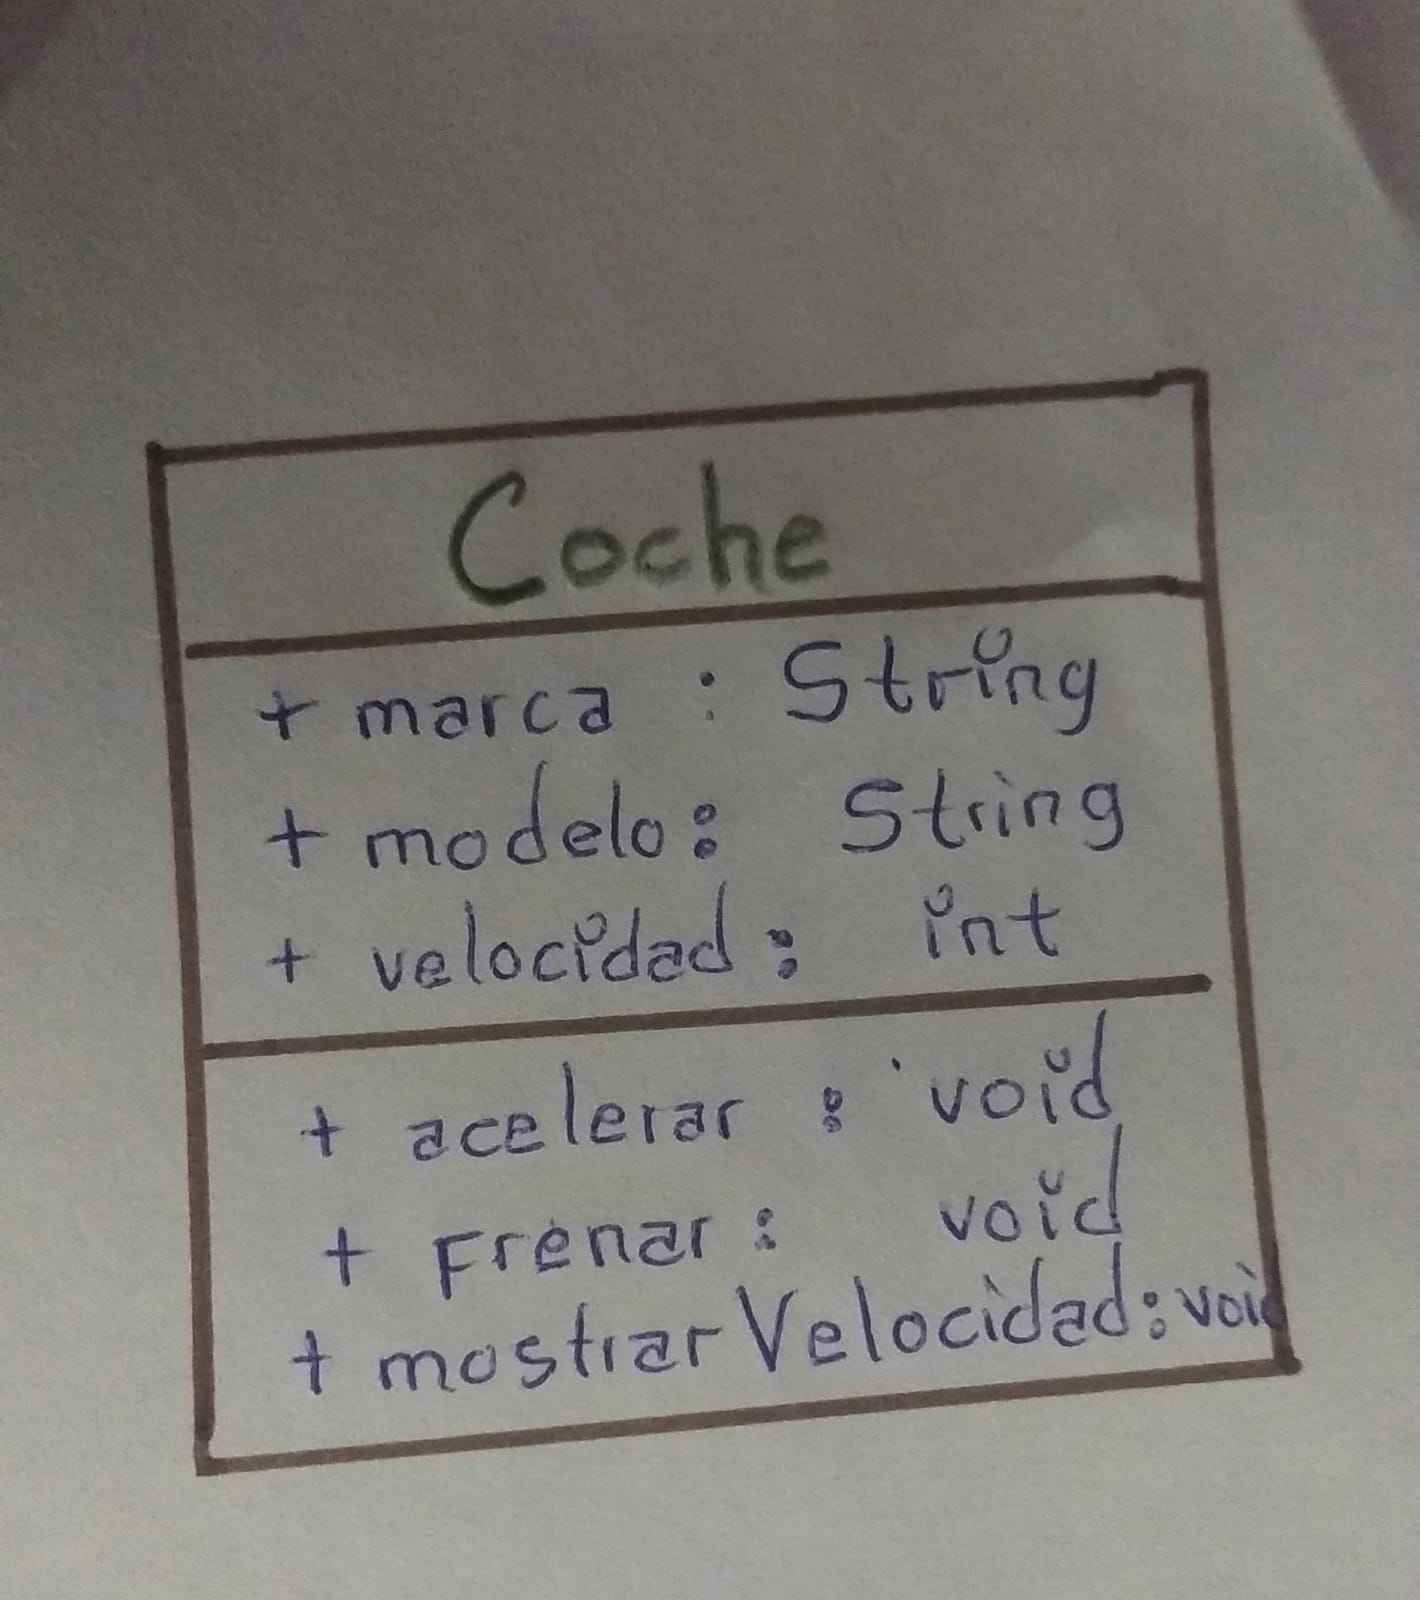 Coche
+ marca : String
+ modelo: String
+ velocidad: int
+ acelerar : void
+ Frenar: void
+ mostrarVelocidad: void